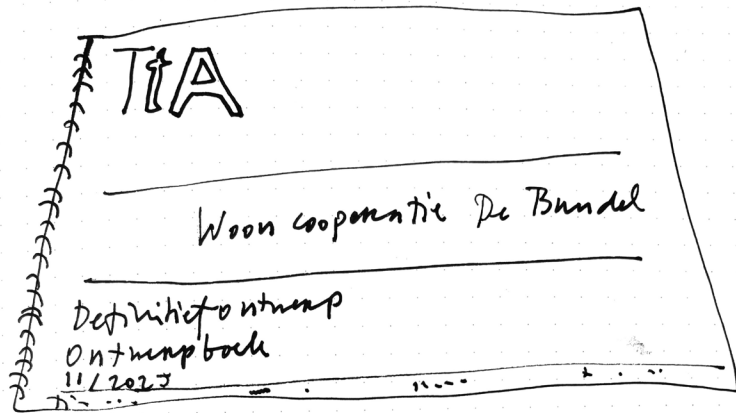 TtA
Wooncooperatie De Bundel
Definitief ontwerp
Ontwerpboek
11/2023